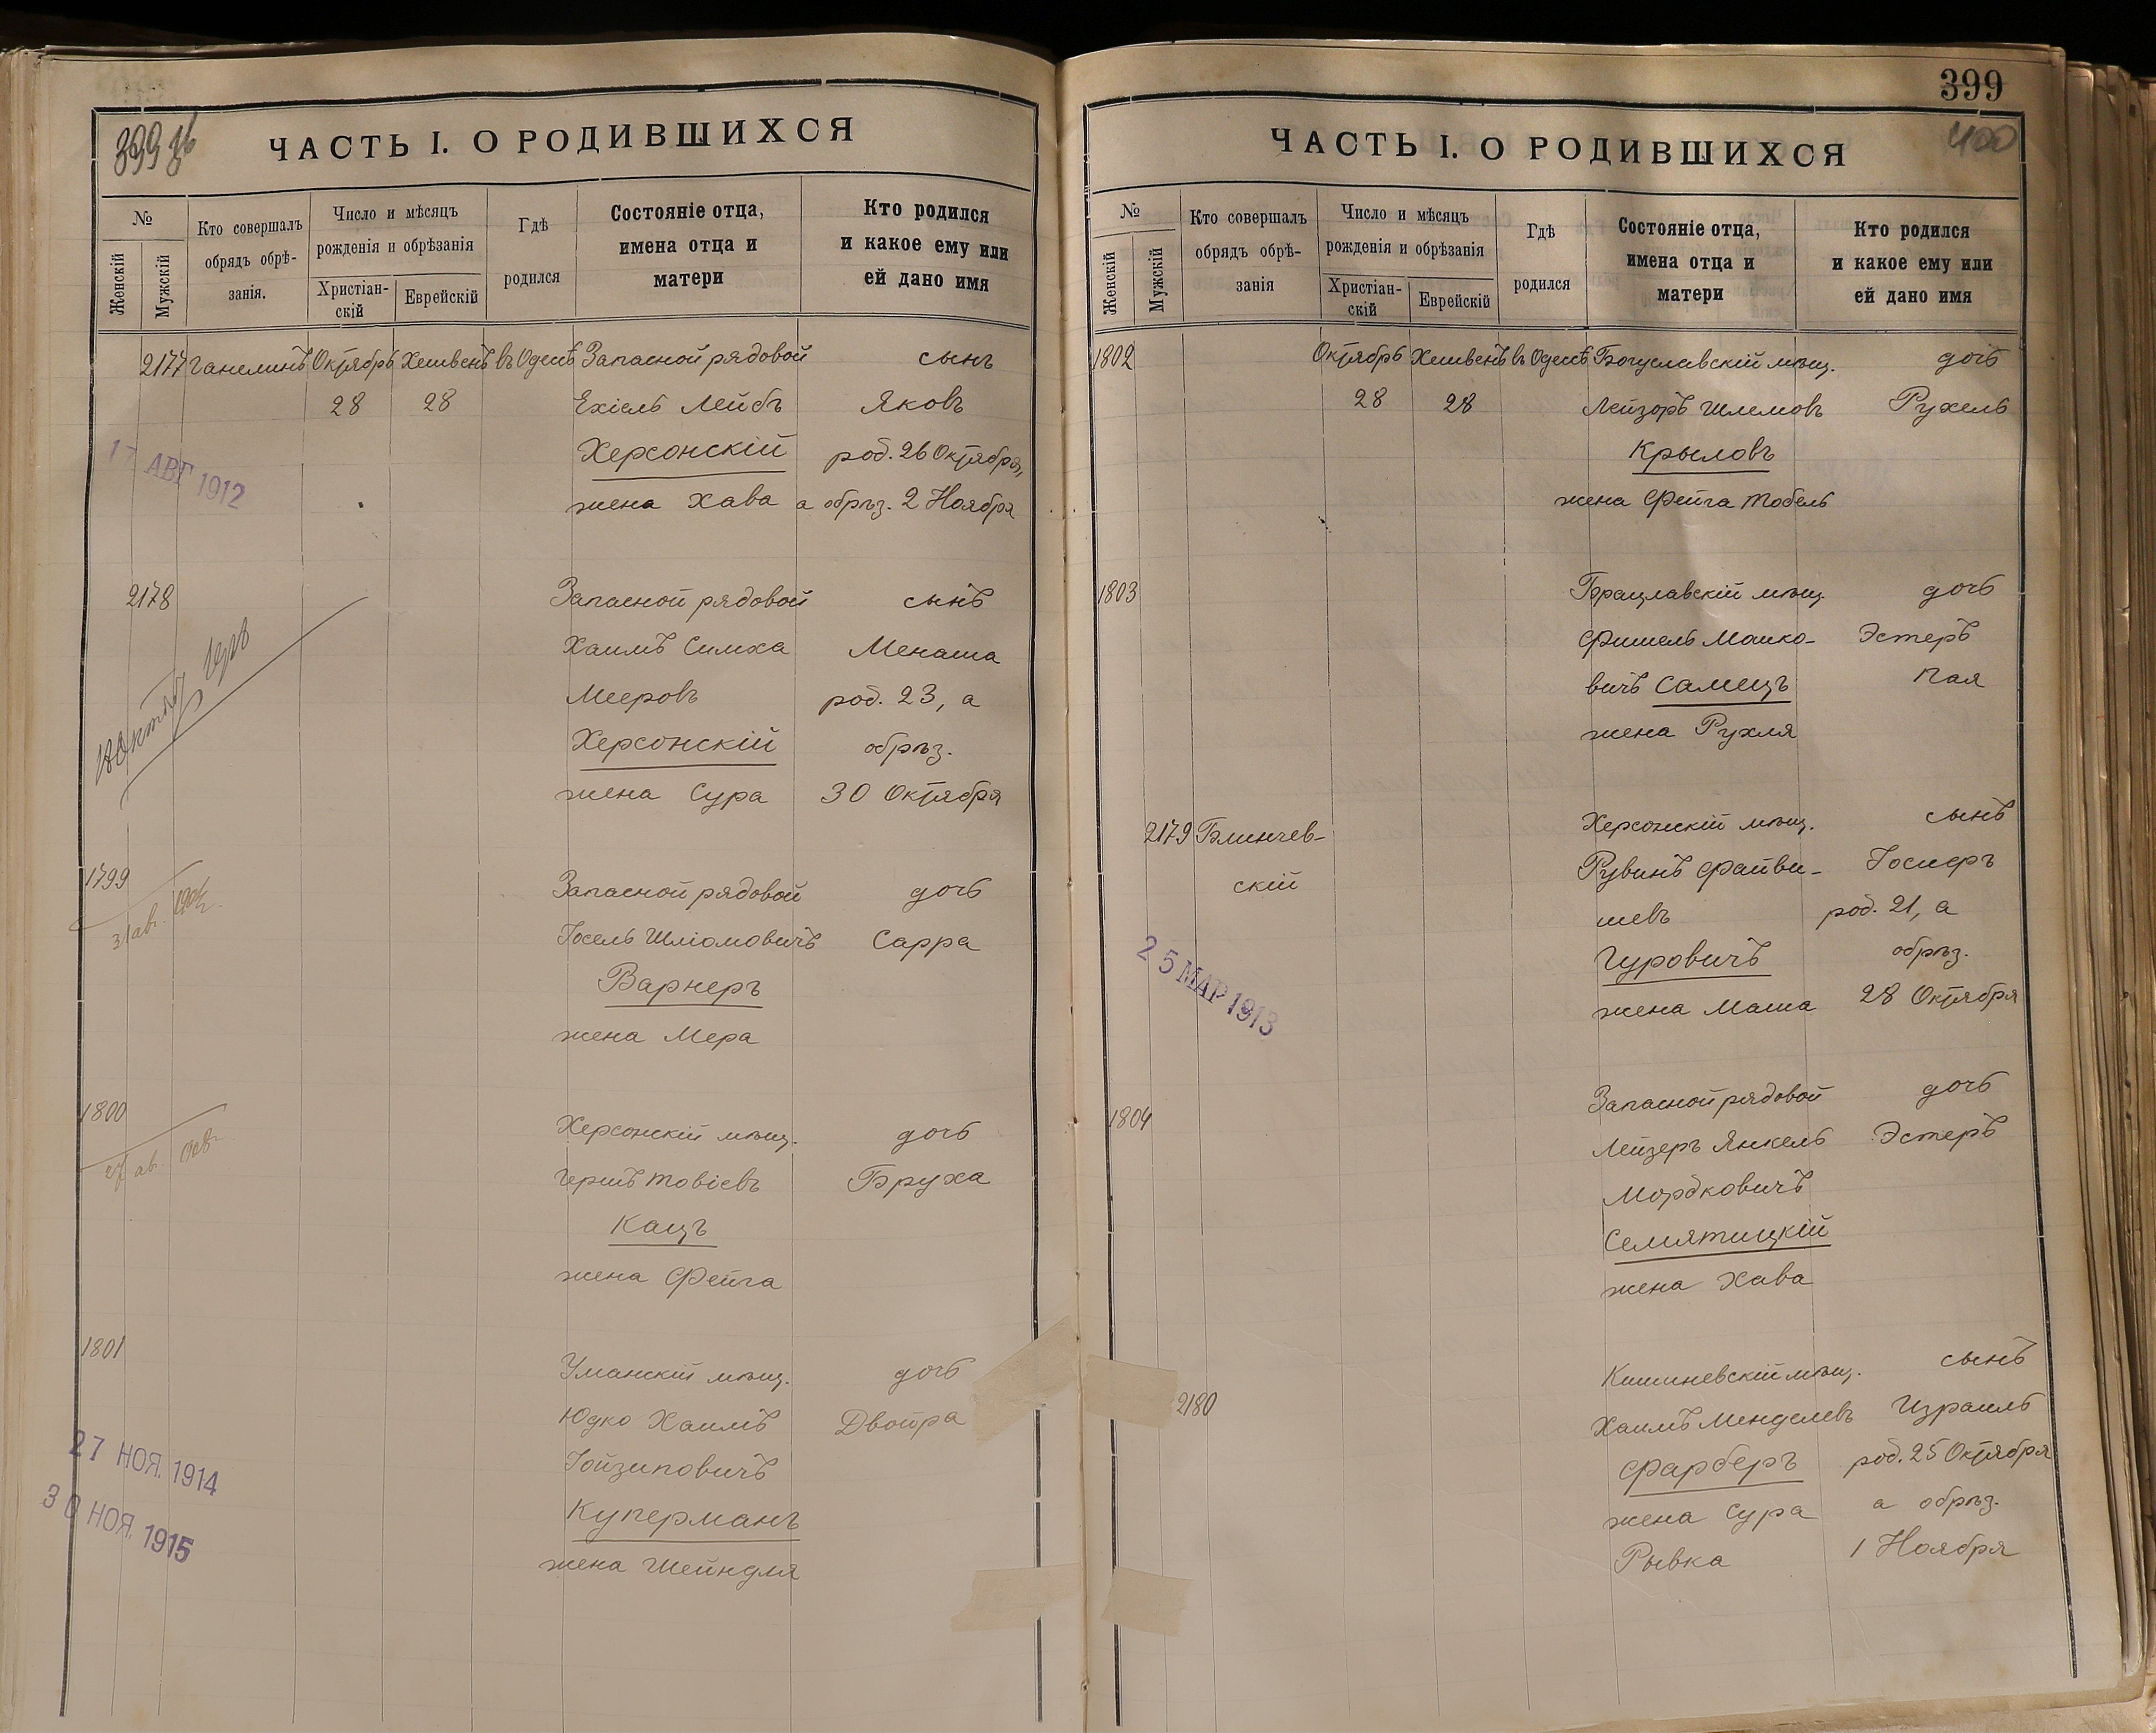 399 об
ЧАСТЬ I. О РОДИВШИХСЯ
№
Женскій
Мужскій
Кто совершалъ
обрядъ обрѣ-
занія.
Число и мѣсяцъ
рожденія и обрѣзанія
Христіан-
скій
Еврейскій
Гдѣ
родился
Состояніе отца,
имена отца и
матери
Кто родился
и какое ему или
ей дано имя
2177 Ганелинъ Октябрь Хешвенъ въ Одессѣ Запасной рядовой сынъ
28 28 Ехіель Лейбъ Яковъ
Херсонскій род. 26 Октября,
17 АВГ 1912
жена Хава а обрѣз. 2 Ноября
2178 Запасной рядовой сынъ
Хаимъ Симха Менаша
Мееровъ род. 23, а
Херсонскій обрѣз.
жена Сура 30 Октября
1799 Запасной рядовой дочь
31 ав.
Іосель Шліомовичъ Сарра
Варнеръ
жена Мера
1800 Херсонскій мѣщ. дочь
27 ав.
Гершъ Товіевъ Бруха
Кацъ
жена Фейга
1801 Уманскій мѣщ. дочь
Юдко Хаимъ Двойра
27 НОЯ. 1914
Іойзиповичъ
30 НОЯ. 1915
Куперманъ
жена Шейндля
399
400
ЧАСТЬ I. О РОДИВШИХСЯ
№
Женскій
Мужскій
Кто совершалъ
обрядъ обрѣ-
занія
Число и мѣсяцъ
рожденія и обрѣзанія
Христіан-
скій
Еврейскій
Гдѣ
родился
Состояніе отца,
имена отца и
матери
Кто родился
и какое ему или
ей дано имя
1802 Октябрь Хешвенъ въ Одессѣ Богуславскій мѣщ. дочь
28 28 Лейзоръ Шлемовъ Рухель
Крыловъ
жена Фейга Тобель
1803 Брацлавскій мѣщ. дочь
Фишель Мошко- Эстеръ
вичъ Самецъ Пая
жена Рухля
2179 Блинчев- Херсонскій мѣщ. сынъ
скій Рувинъ Файви- Іосиеръ
шевъ род. 21, а
25 МАР 1913
Гуровичъ обрѣз.
жена Маша 28 Октября
1804 Запасной рядовой дочь
Лейзеръ Янкель Эстеръ
Мордковичъ
Семятицкій
жена Хава
2180 Кишиневскій мѣщ. сынъ
Хаимъ Менделевъ Израиль
Фарберъ род. 25 Октября
жена Сура а обрѣз.
Рывка 1 Ноября